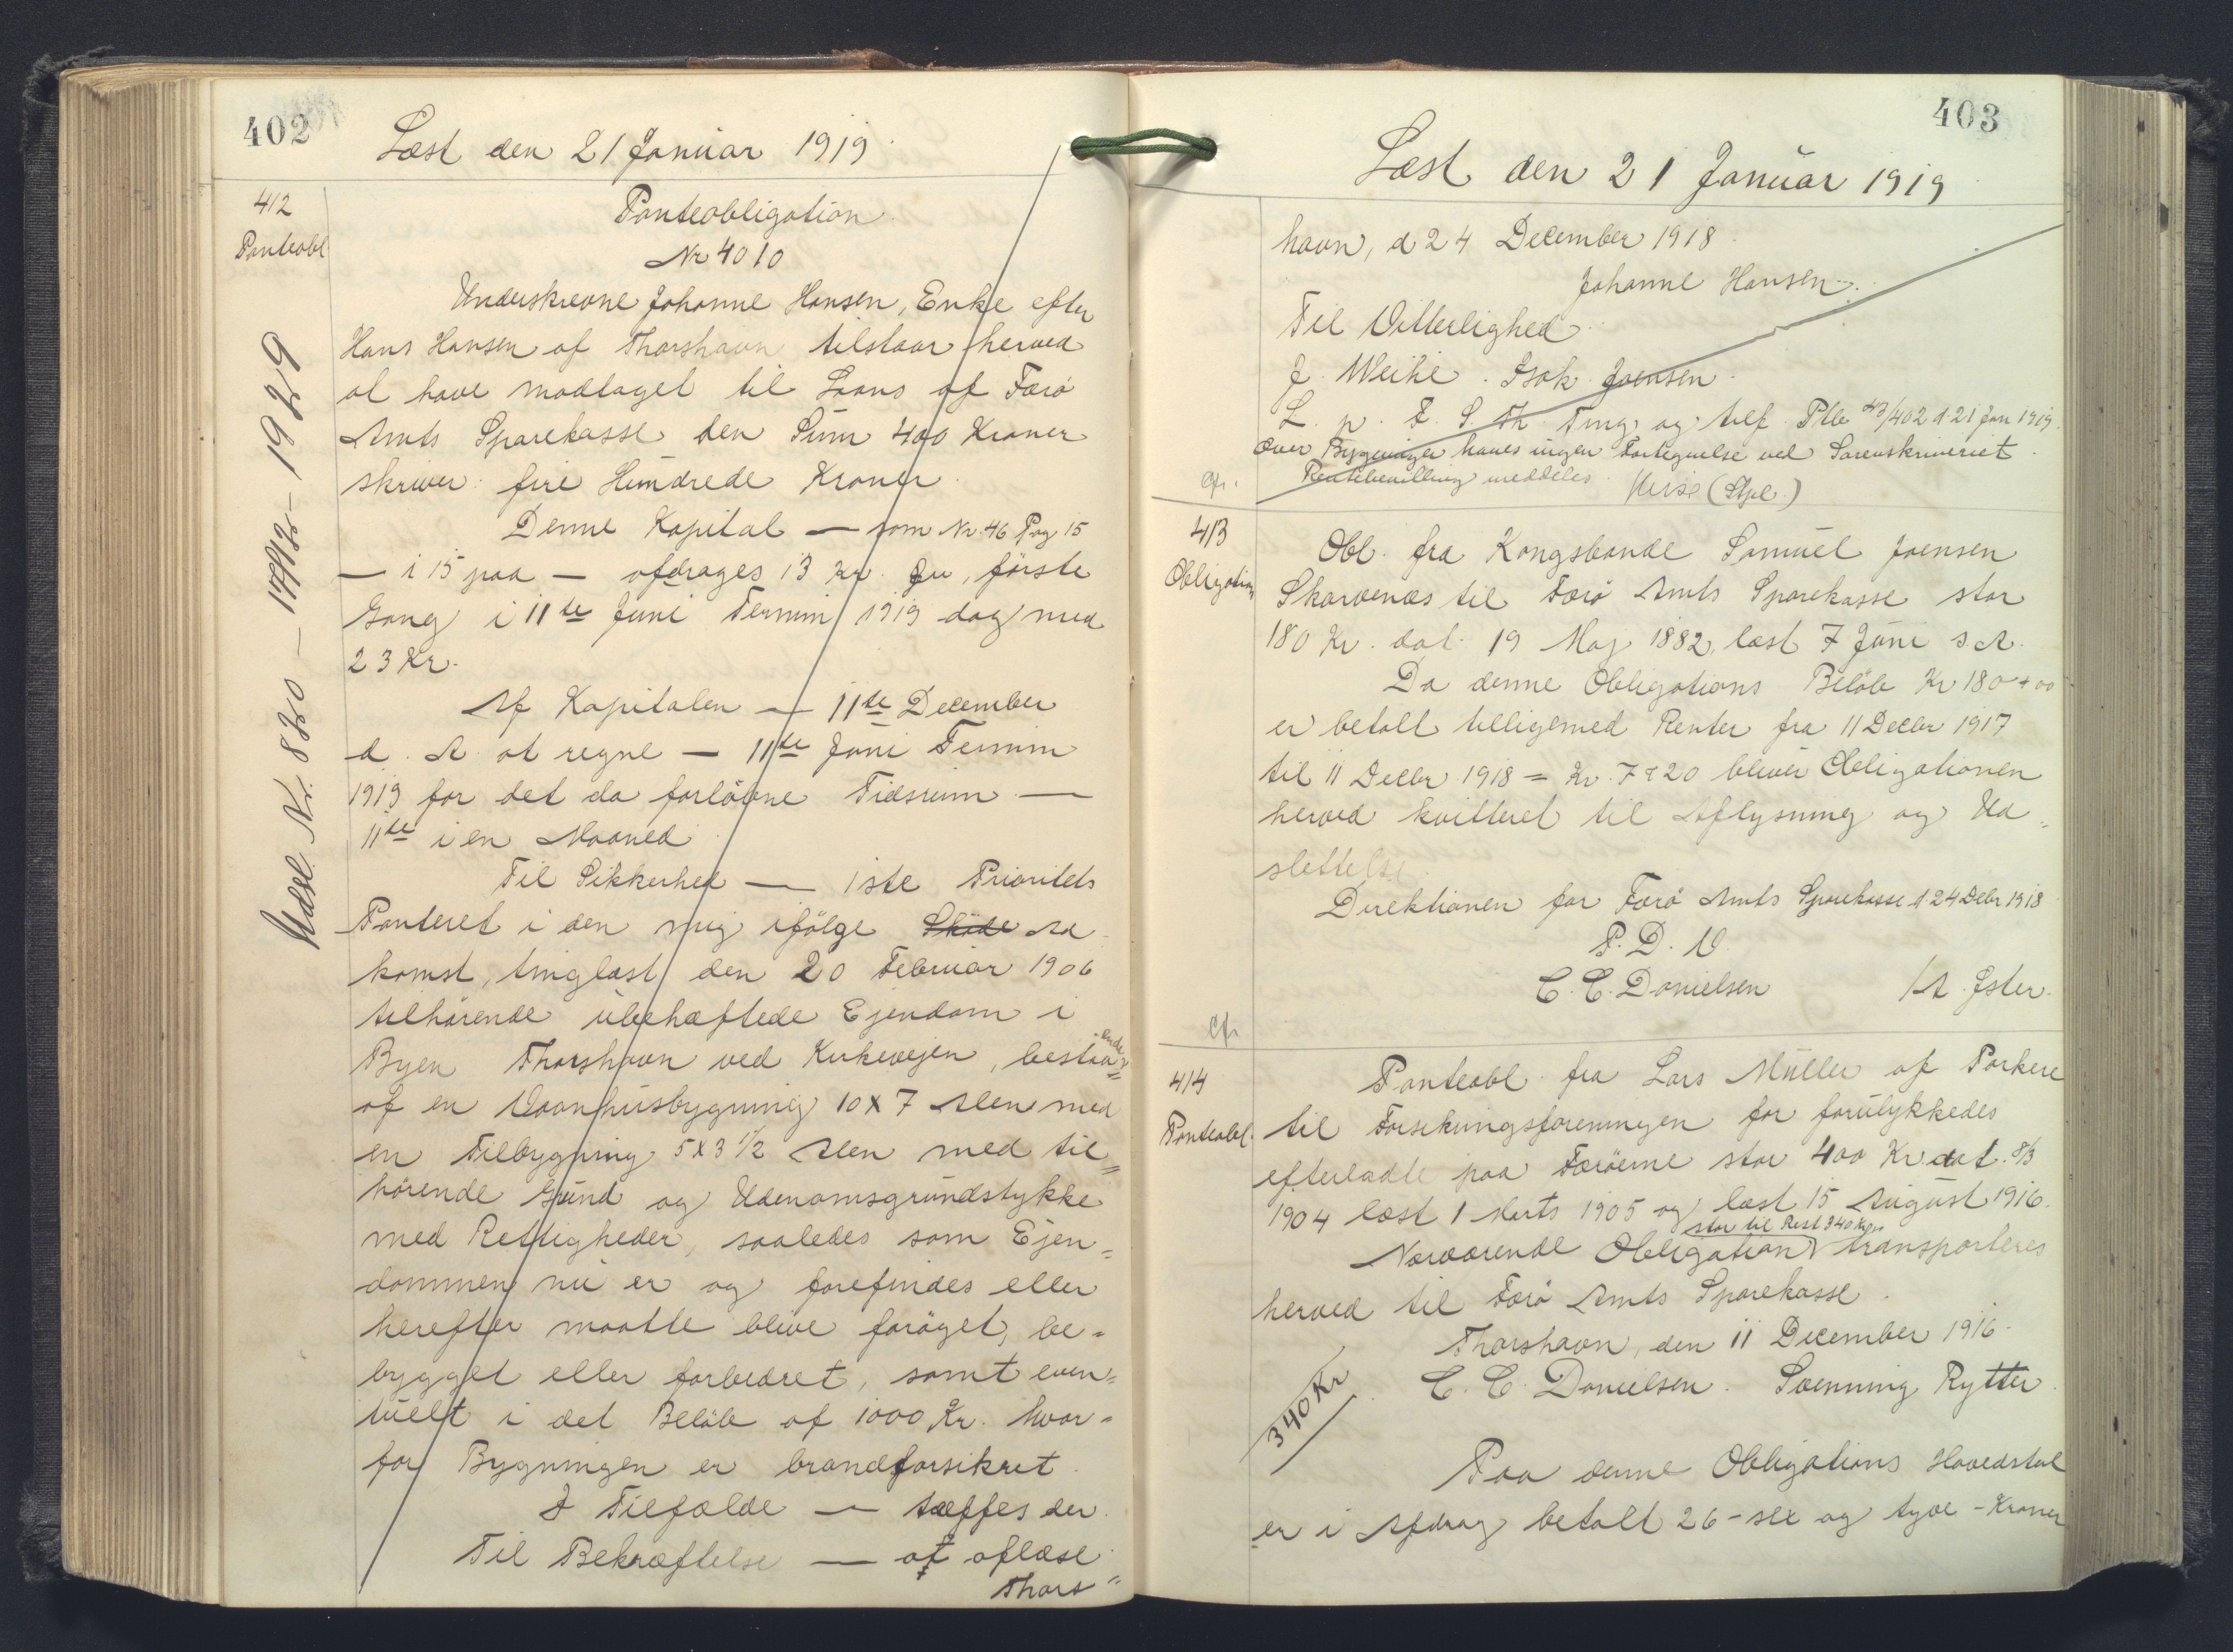 402
Læst den 21 Januar 1919
412
Panteobl
Panteobligation
Nr 4010
Underskrevne Johanne Hansen, Enke efter
Hans Hansen af Thorshavn tilstaar herved
at have modtaget til Laans af Færø
Amts Sparekasse den Sum 400 Kroner
skriver: fire Hundrede Kroner.
Denne Kapital — som Nr. 46 Pag 15
— i 15 paa — afdrages 13 Kr. , første
Gang i 11te Juni Termin 1919 dog med
23 Kr.
Af Kapitalen — 11te December
d. A. at regne — 11te Juni Termin
1919 for det da forløbne Tidsrum —
11te i en Maaned
Til Sikkerhed — 1ste Prioritets
Panteret i den mig ifølge Skøde Ad
komst, tinglæst den 20 Februar 1906
tilhørende ubehæftede Ejendom i
Byen Thorshavn ved Kirkevejen, bestaaende
af en Vaanhusbygning 10 x 7 Alen med
en Tilbygning 5 x 3 1/2 Alen med til=
hørende Grund og Udenomsgrundstykke
med Rettigheder, saaledes som Ejen=
dommen nu er og forefindes eller
herefter maatte blive forøget, be=
bygget eller forbedret, samt even=
tuelt i det Beløb af 1000 Kr. hvor=
for Bygningen er brandforsikret.
I Tilfælde — træffes der.
Til Bekræftelse — at aflæse.
Thors=
Udsl. Nr. 820 - 17/12 - 1929
403
Læst den 21 Januar 1919
havn, d 24 December 1918
Johanne Hansen.
Til Vitterlighed
J. Weihe. Isak Joensen
L. p. F. S. Th Ting og tilf. Ptb 43/402 d. 21 Jan 1919.
Over Bygninger haves ingen Fortegnelse ved Sorenskriveriet.
Rentebevilling meddeles. (Stpl.)
Cfr.
413
Obligation
Obl. fra Kongsbonde Samuel Joensen
Skarvenæs til Færø Amts Sparekasse stor
180 Kr. dat. 19 Maj 1882, læst 7 Juni s. A.
Da denne Obligations Beløb Kr 180 + 00
er betalt tilligemed Renter fra 11 Decbr 1917
til 11 Decbr 1918 = Kr. 7 20 bliver Obligationen
herved kvitteret til Aflysning og Ud=
slettelse
Direktionen for Færø Amts Sparekasse d. 24 Debr 1918
P. D. V.
C. C. Danielsen / A. Ister.
Cfr
414
Panteobl.
Panteobl. fra Lars Müller af Porkere
til Forsikringsforeningen for forulykkedes
efterladte paa Færøerne stor 400 Kr. dat. 8/3
1904 læst 1 Marts 1905 og læst 15 August 1916.
stor til Rest 340 Kr
Nærværende Obligation transporteres
herved til Færø Amts Sparekasse.
Thorshavn, den 11 December 1916.
C. C. Danielsen. Svenning Rytter.
340 Kr
Paa denne Obligations Hovedstol
er i Afdrag betalt 26 - sex og tyve - Kroner